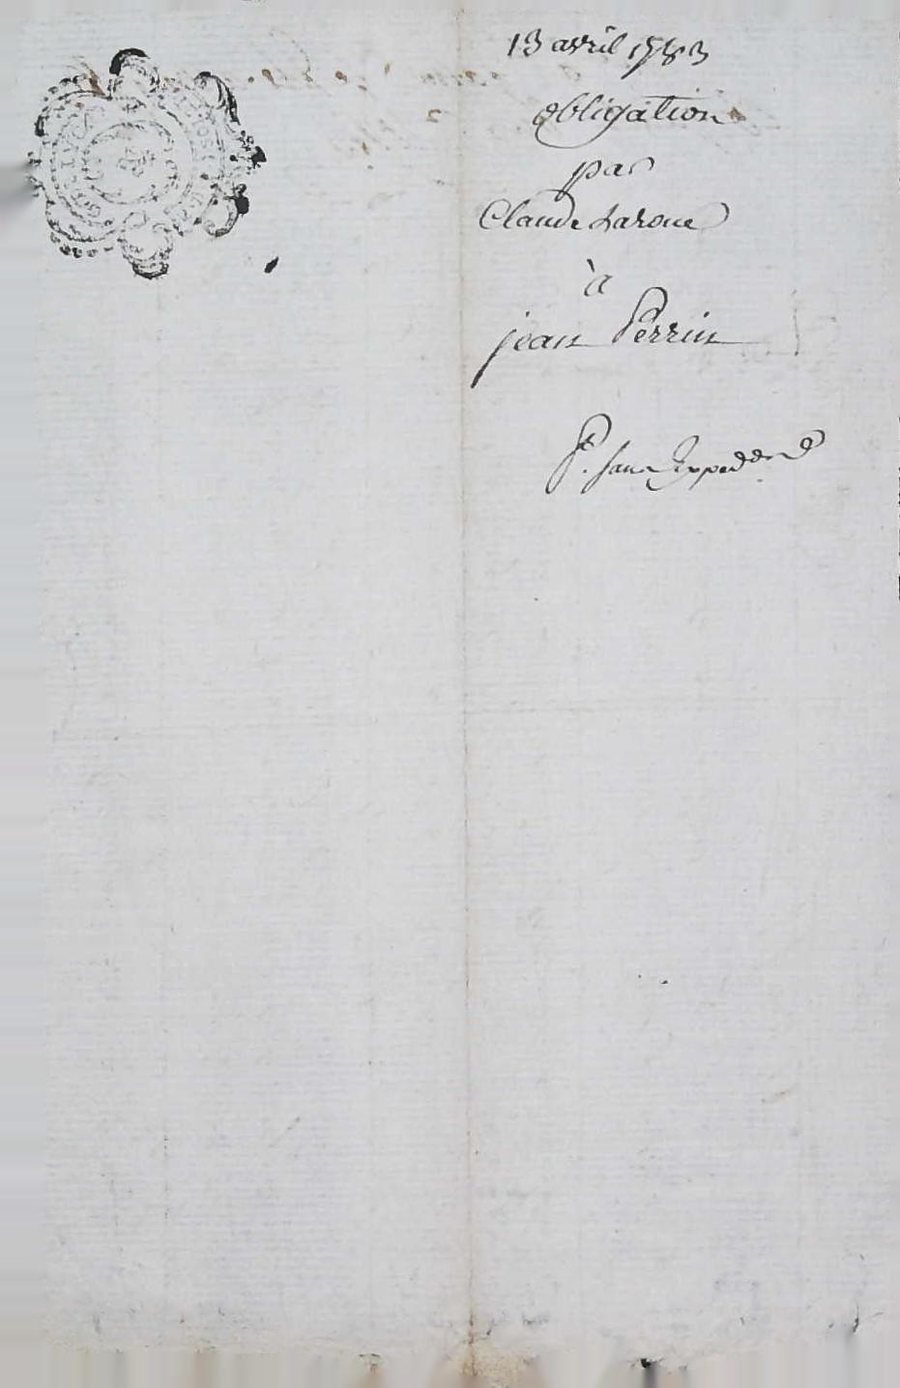 13 avril 1783
obligation
par
Claude Laroue
à
jean Perrin
P. sans